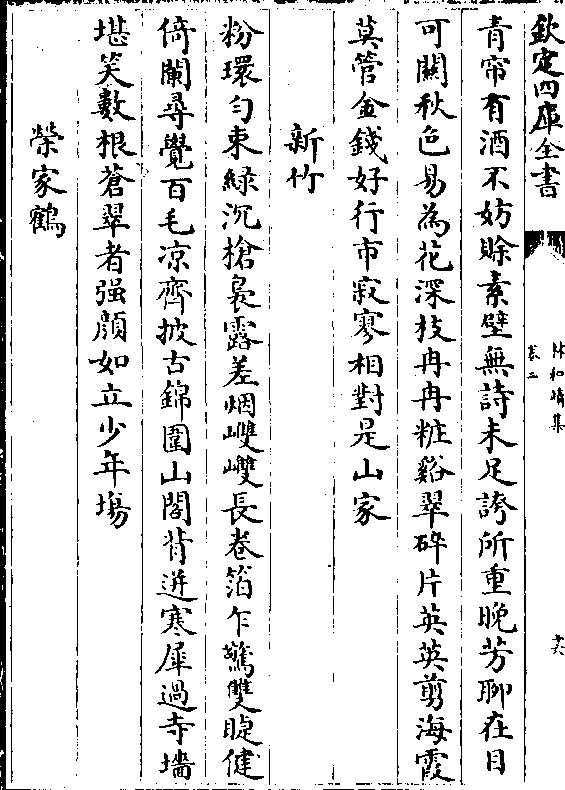 欽定四庫全書
林和靖集
卷二
十六
青帘有酒不妨賖素壁無詩未足誇所重晚芳聊在目
可關秋色易為花深枝冉冉粧谿翠碎片英英剪海霞
莫管金錢好行市寂寥相對是山家
新竹
粉環勻束綠沉槍裊露差烟巊巊長卷箔乍驚雙睫健
倚闌尋覺百毛凉齊披古錦圍山閣背迸寒犀過寺墻
堪笑數根蒼翠者强顔如立少年塲
榮家鶴